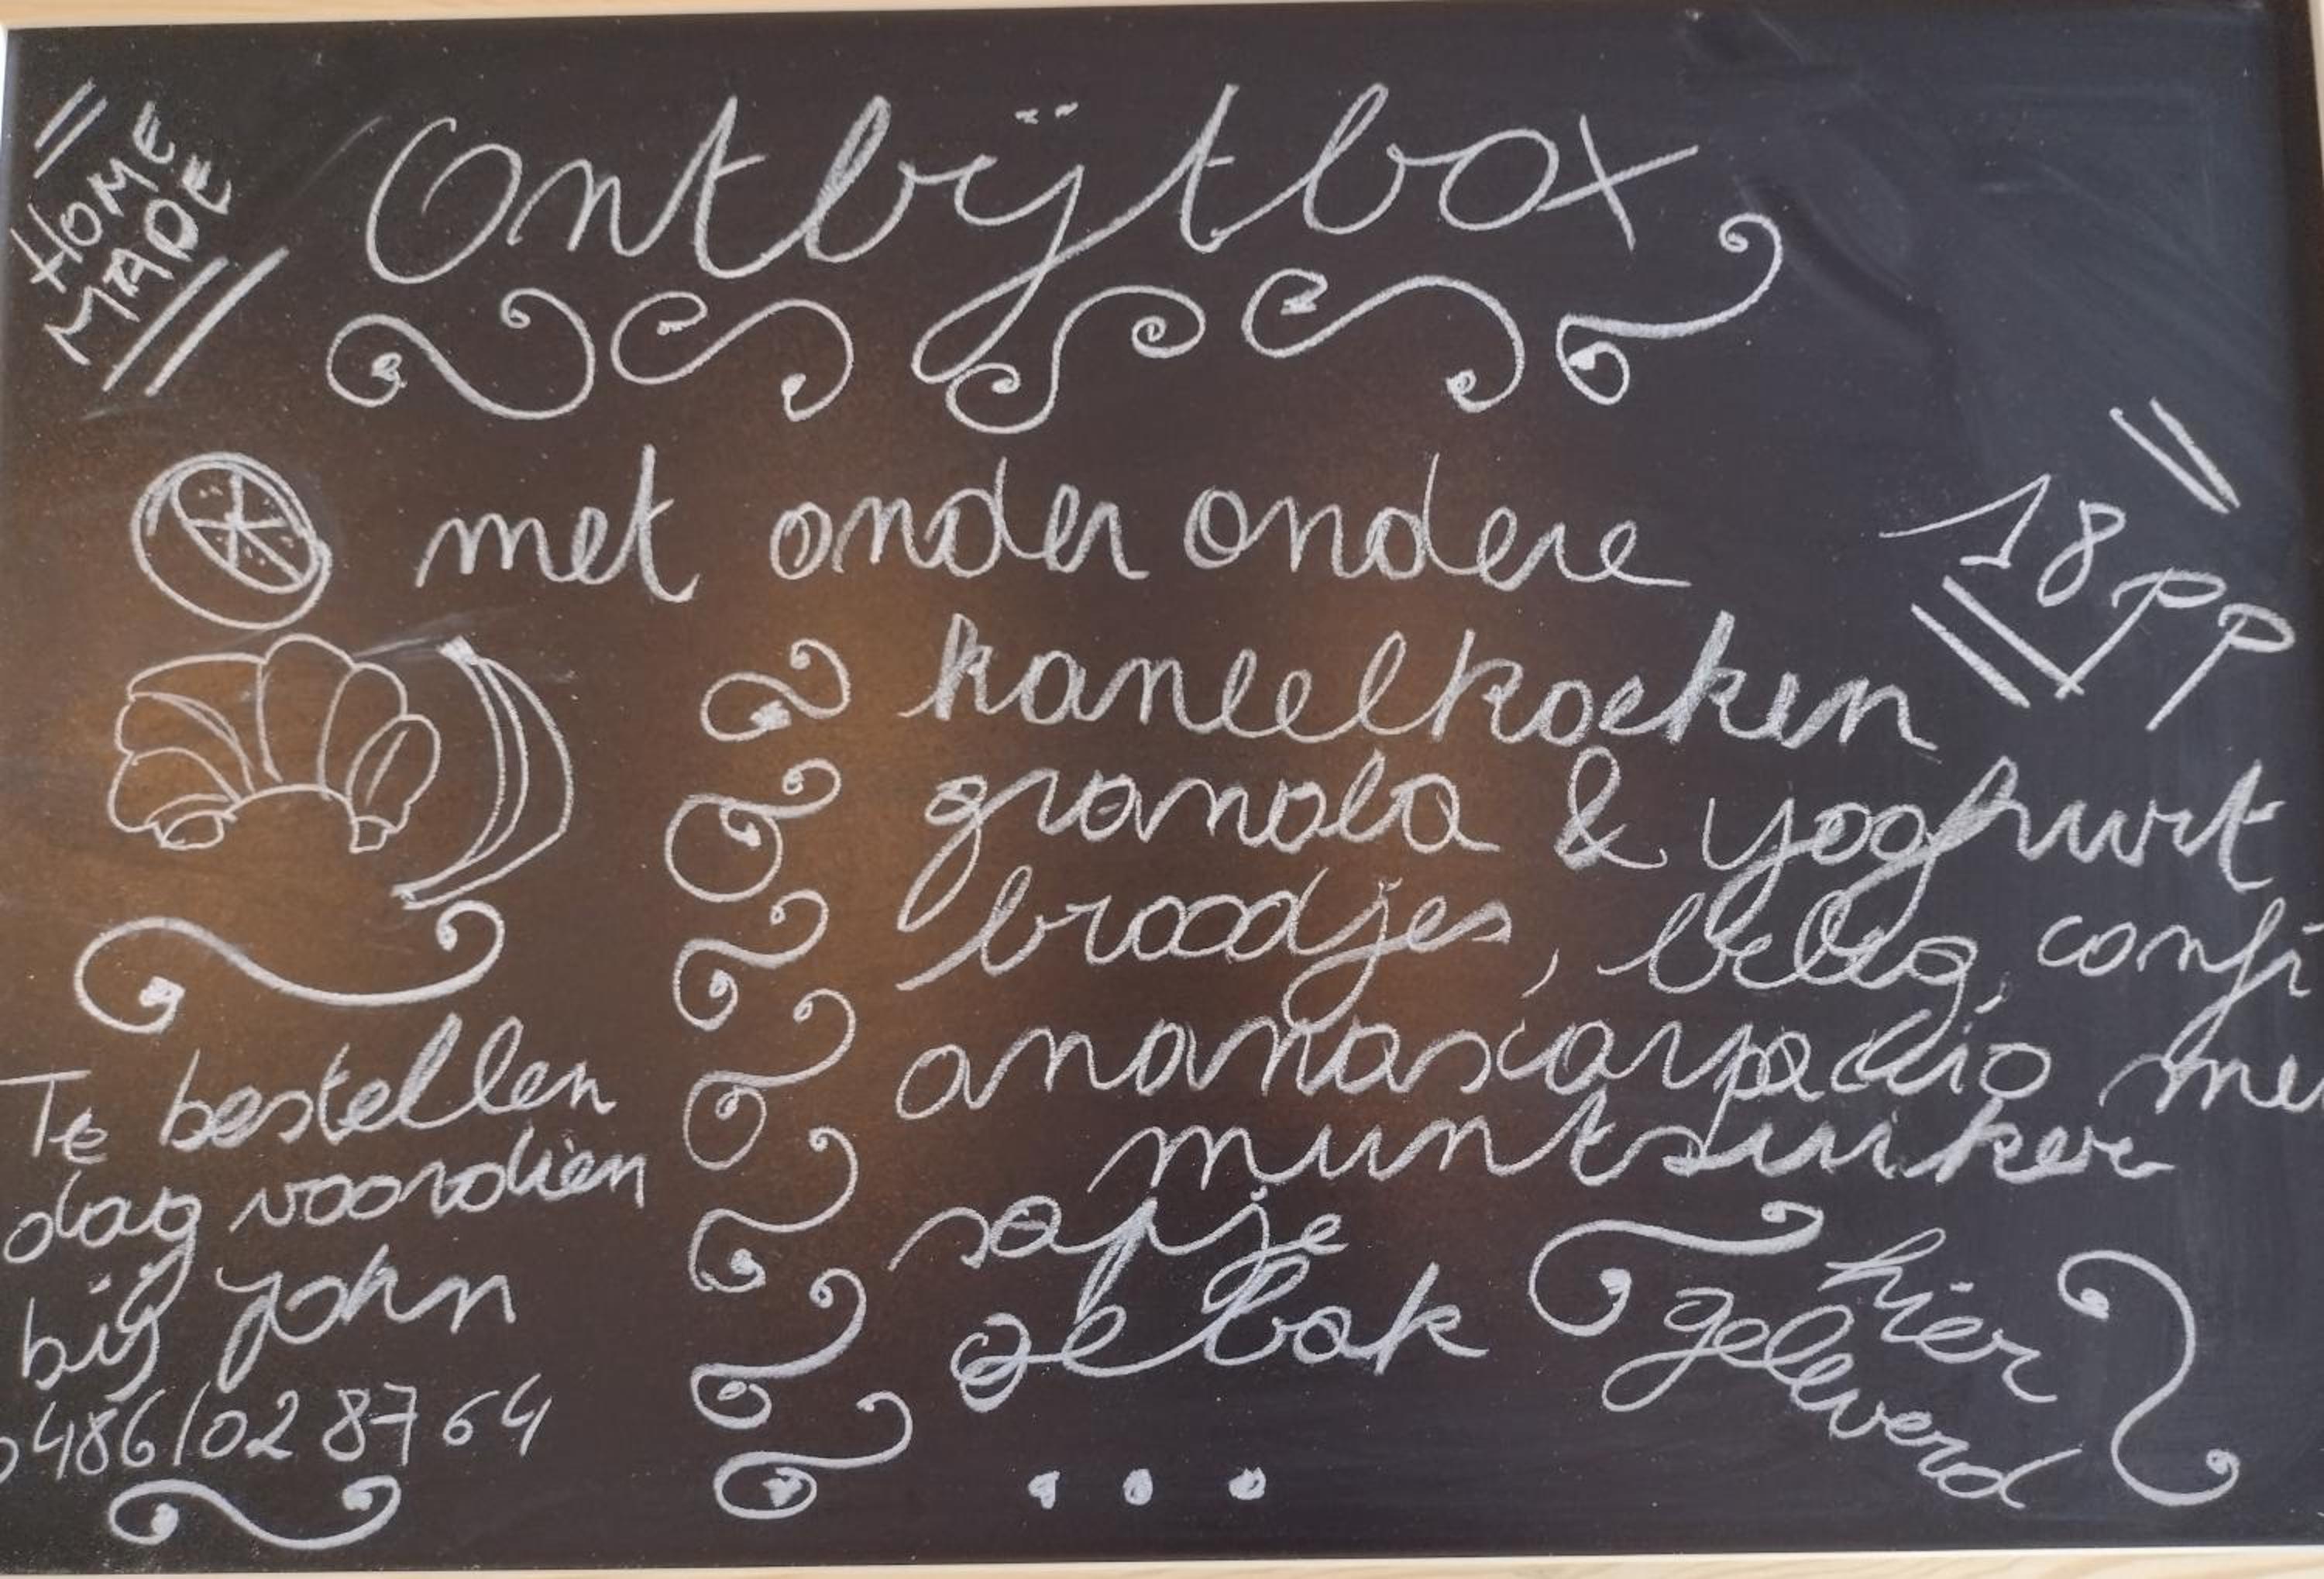 HOME
MADE
Ontbijtbox
met onder andere
18 pp
kaneelkoeken
granola & yoghurt
broodjes, beleg, confi
ananascarpaccio met
muntsuiker
sapje
gebak
...
Te bestellen
dag voordien
bij John
0486/02 87 64
hier
geleverd